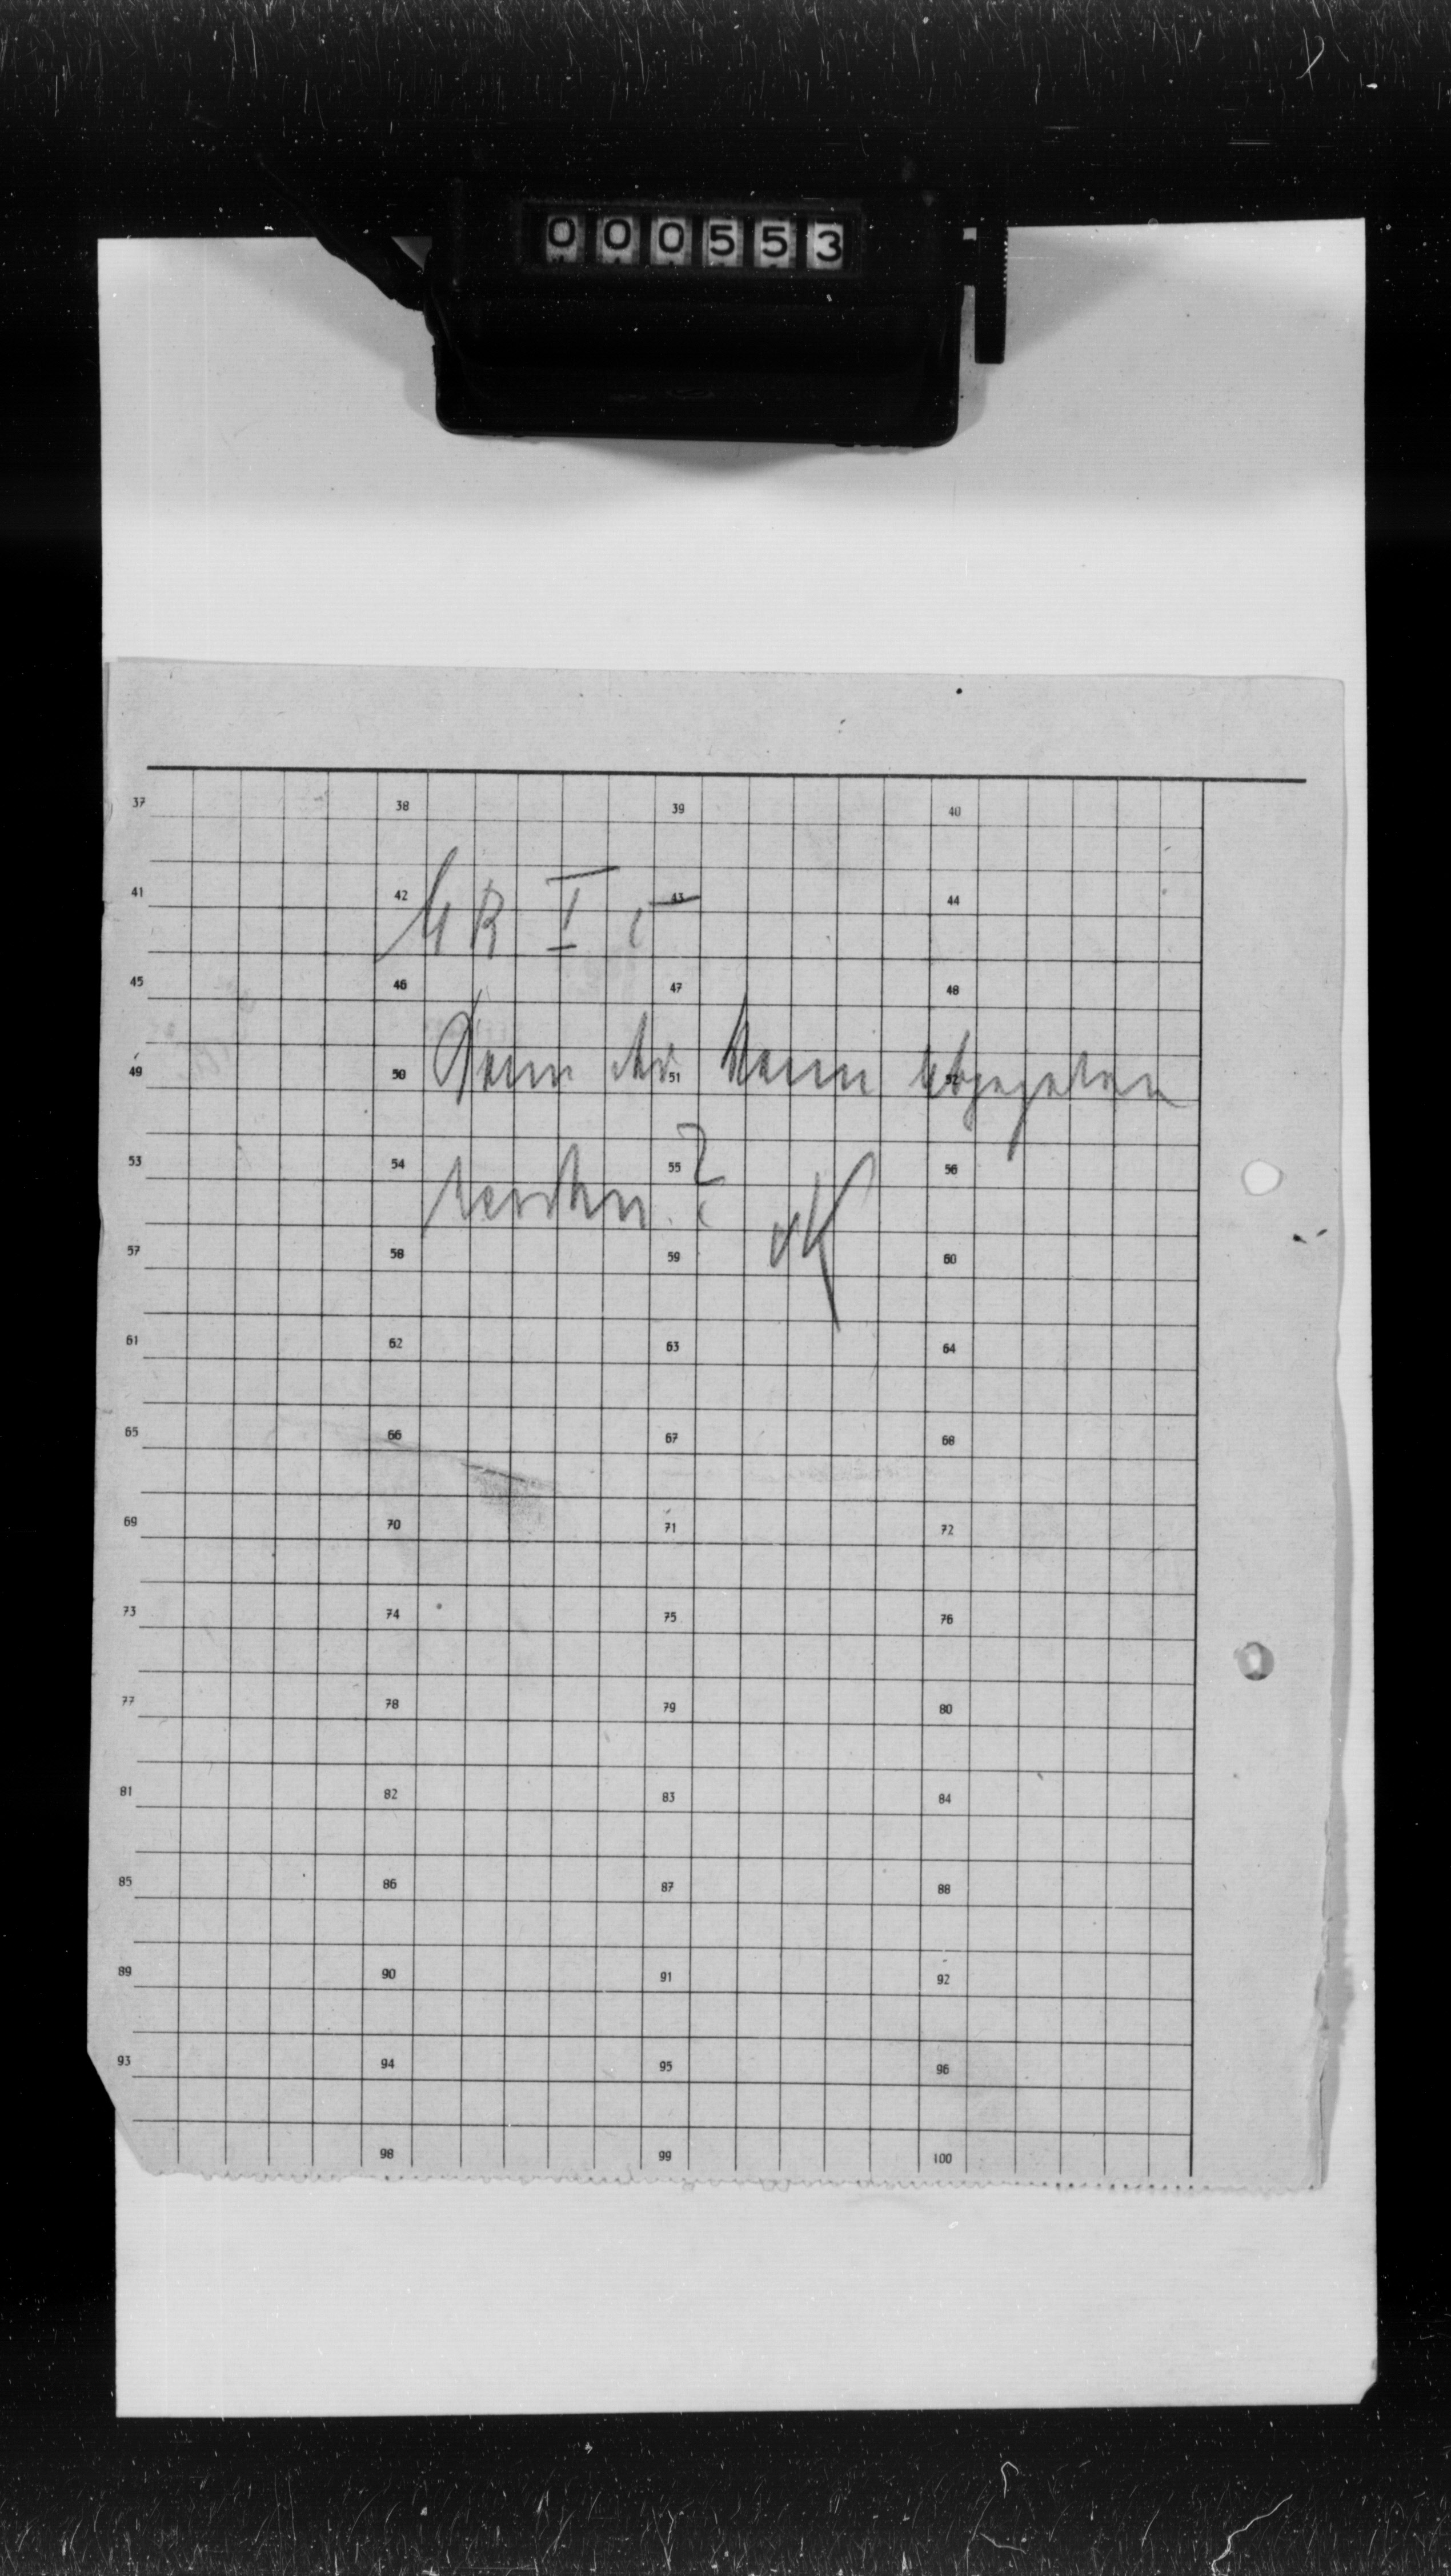 000553
37 38 39 40
41 42 43 44
I
45 46 47 48
Kann der Mann abgegeben
49 50 51 52
werden?
53 54 55 56
vK
57 58 59 60
61 62 63 64
65 66 67 68
69 70 71 72
73 74 75 76
77 78 79 80
81 82 83 84
85 86 87 88
89 90 91 92
93 94 95 96
98 99 100